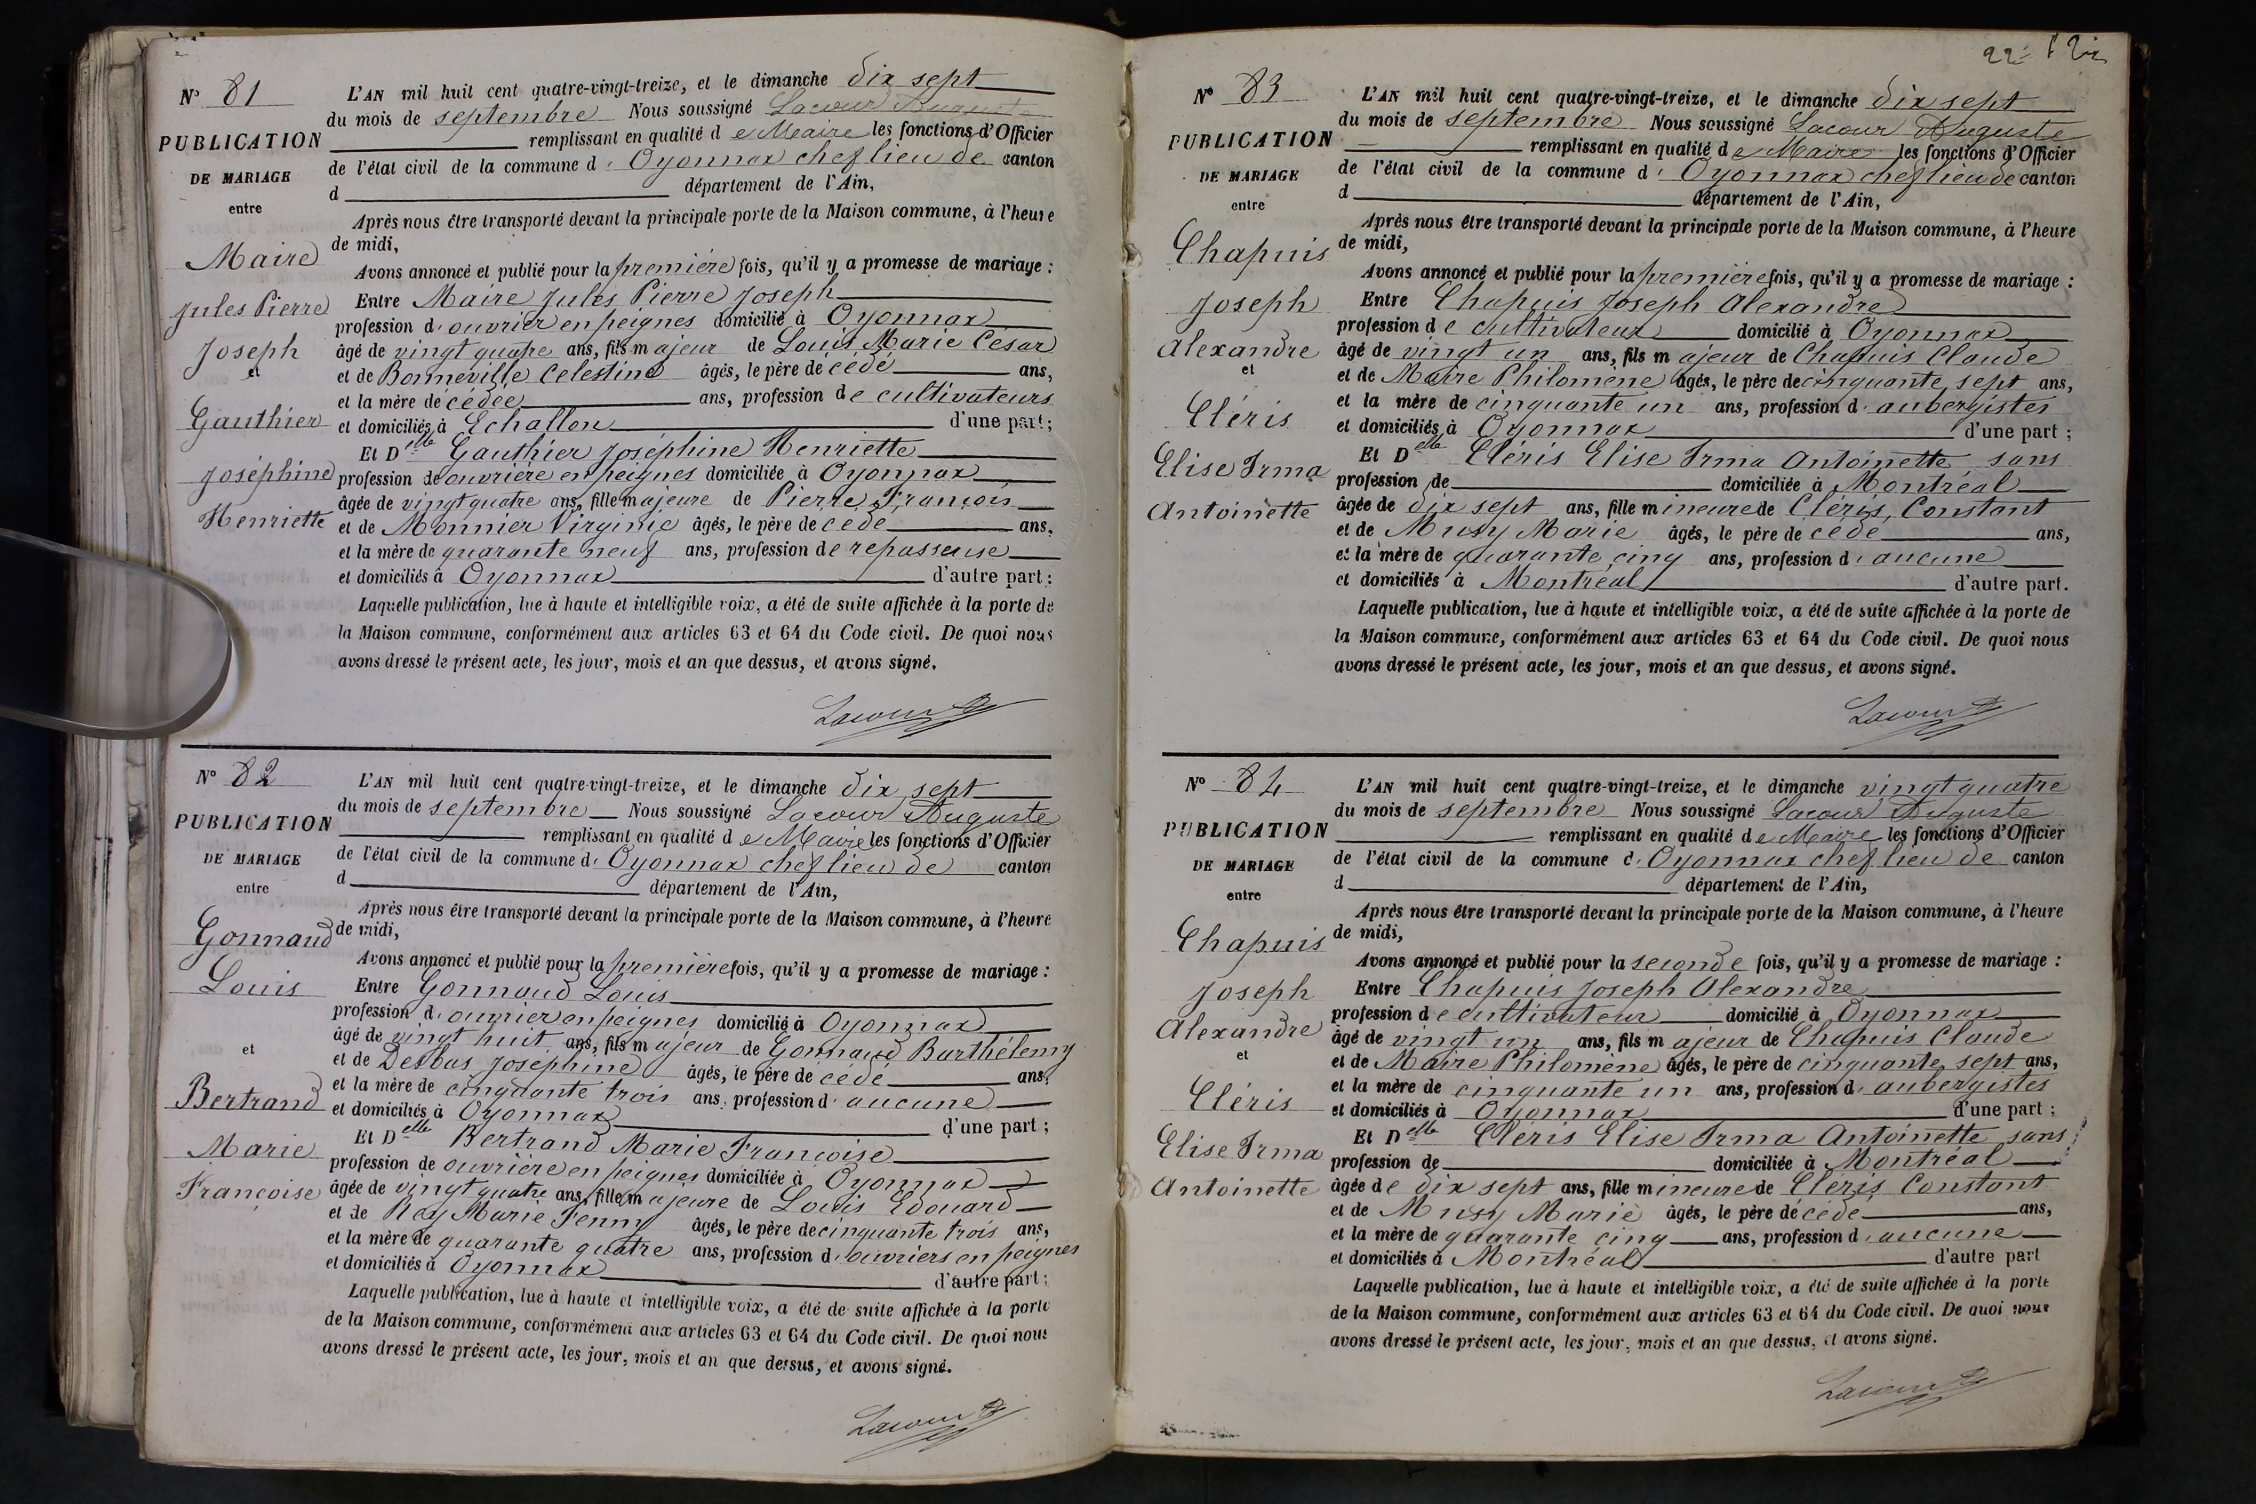 N° 81
PUBLICATION
DE MARIAGE
entre
Maire
Jules Pierre
Joseph
et
Gauthier
Joséphine
Henriette
L'AN mil huit cent quatre-vingt-treize, et le dimanche dix sept
du mois de septembre Nous soussigné Lacour Auguste
remplissant en qualité de Maire les fonctions d'Officier
de l'état civil de la commune d' Oyonnax chef lieu de canton
d département de l'Ain,
Après nous être transporté devant la principale porte de la Maison commune, à l'heure
de midi,
Avons annoncé et publié pour la première fois, qu'il y a promesse de mariage :
Entre Maire Jules Pierre Joseph
profession d' ouvrier en peignes domicilié à Oyonnax
âgé de vingt quatre ans, fils majeur de Louis Marie César
et de Bonneville Celestine âgés, le père décédé ans,
et la mère décédée ans, profession de cultivateurs
et domiciliés à Echallon d'une part;
Et Delle Gauthier Joséphine Henriette
profession de ouvrière en peignes domiciliée à Oyonnax
âgée de vingt quatre ans, fille majeure de Pierre François
et de Monnier Virginie âgés, le père de cédé ans,
et la mère de quarante neuf ans, profession de repasseuse
et domiciliés à Oyonnax d'autre part;
Laquelle publication, lue à haute et intelligible voix, a été de suite affichée à la porte de
la Maison commune, conformément aux articles 63 et 64 du Code civil. De quoi nous
avons dressé le présent acte, les jour, mois et an que dessus, et avons signé.
Lacour
N° 82
PUBLICATION
DE MARIAGE
entre
Gonnand
Louis
et
Bertrand
Marie
Françoise
L'AN mil huit cent quatre-vingt-treize, et le dimanche dix sept
du mois de septembre Nous soussigné Lacour Auguste
remplissant en qualité de Maire les fonctions d'Officier
de l'état civil de la commune d' Oyonnax chef lieu de canton
d département de l'Ain,
Après nous être transporté devant la principale porte de la Maison commune, à l'heure
de midi,
Avons annoncé et publié pour la première fois, qu'il y a promesse de mariage :
Entre Gonnand Louis
profession d' ouvrier en peignes domicilié à Oyonnax
âgé de vingt huit ans, fils majeur de Gonnand Barthélemy
et de Desbas Joséphine âgés, le père décédé ans,
et la mère de cinquante trois ans, profession d' aucune
et domiciliés à Oyonnax d'une part ;
Et Delle Bertrand Marie Françoise
profession de ouvrière en peignes domiciliée à Oyonnax
âgée de vingt quatre ans, fille majeure de Louis Edouard
et de Rey Marie Fenny âgés, le père de cinquante trois ans,
et la mère de quarante quatre ans, profession d' ouvriers en peignes
et domiciliés à Oyonnax d'autre part ;
Laquelle publication, lue à haute et intelligible voix, a été de suite affichée à la porte
de la Maison commune, conformément aux articles 63 et 64 du Code civil. De quoi nous
avons dressé le présent acte, les jour, mois et an que dessus, et avons signé.
Lacour
22
N° 83
PUBLICATION
DE MARIAGE
entre
Chapuis
Joseph
Alexandre
et
Cléris
Elise Irma
Antoinette
L'AN mil huit cent quatre-vingt-treize, et le dimanche dix sept
du mois de septembre Nous soussigné Lacour Auguste
remplissant en qualité de Maire les fonctions d'Officier
de l'état civil de la commune d' Oyonnax chef lieu de canton
d département de l'Ain,
Après nous être transporté devant la principale porte de la Maison commune, à l'heure
de midi,
Avons annoncé et publié pour la première fois, qu'il y a promesse de mariage :
Entre Chapuis Joseph Alexandre
profession de cultivateur domicilié à Oyonnax
âgé de vingt un ans, fils majeur de Chapuis Claude
et de Maire Philomène âgés, le père de cinquante sept ans,
et la mère de cinquante un ans, profession d' aubergistes
et domiciliés à Oyonnax d'une part ;
Et Delle Cléris Elise Irma Antoinette sans
profession de domiciliée à Montréal
âgée de dix sept ans, fille mineure de Cléris Constant
et de Musy Marie âgés, le père de cédé ans,
et la mère de quarante cinq ans, profession d' aucune
et domiciliés à Montréal d'autre part.
Laquelle publication, lue à haute et intelligible voix, a été de suite affichée à la porte de
la Maison commune, conformément aux articles 63 et 64 du Code civil. De quoi nous
avons dressé le présent acte, les jour, mois et an que dessus, et avons signé.
Lacour
N° 84
PUBLICATION
DE MARIAGE
entre
Chapuis
Joseph
Alexandre
et
Cléris
Elise Irma
Antoinette
L'AN mil huit cent quatre-vingt-treize, et le dimanche vingt quatre
du mois de septembre Nous soussigné Lacour Auguste
remplissant en qualité de Maire les fonctions d'Officier
de l'état civil de la commune d' Oyonnax chef lieu de canton
d département de l'Ain,
Après nous être transporté devant la principale porte de la Maison commune, à l'heure
de midi,
Avons annoncé et publié pour la seconde fois, qu'il y a promesse de mariage :
Entre Chapuis Joseph Alexandre
profession de cultivateur domicilié à Oyonnax
âgé de vingt un ans, fils majeur de Chapuis Claude
et de Maire Philomène âgés, le père de cinquante sept ans,
et la mère de cinquante un ans, profession d' aubergistes
et domiciliés à Oyonnax d'une part ;
Et Delle Cléris Elise Irma Antoinette sans
profession de domiciliée à Montréal
âgée de dix sept ans, fille mineure de Cléris Constant
et de Musy Marie âgés, le père décédé ans,
et la mère de quarante cinq ans, profession d' aucune
et domiciliés à Montréal d'autre part
Laquelle publication, lue à haute et intelligible voix, a été de suite affichée à la porte
de la Maison commune, conformément aux articles 63 et 64 du Code civil. De quoi nous
avons dressé le présent acte, les jour, mois et an que dessus, et avons signé.
Lacour